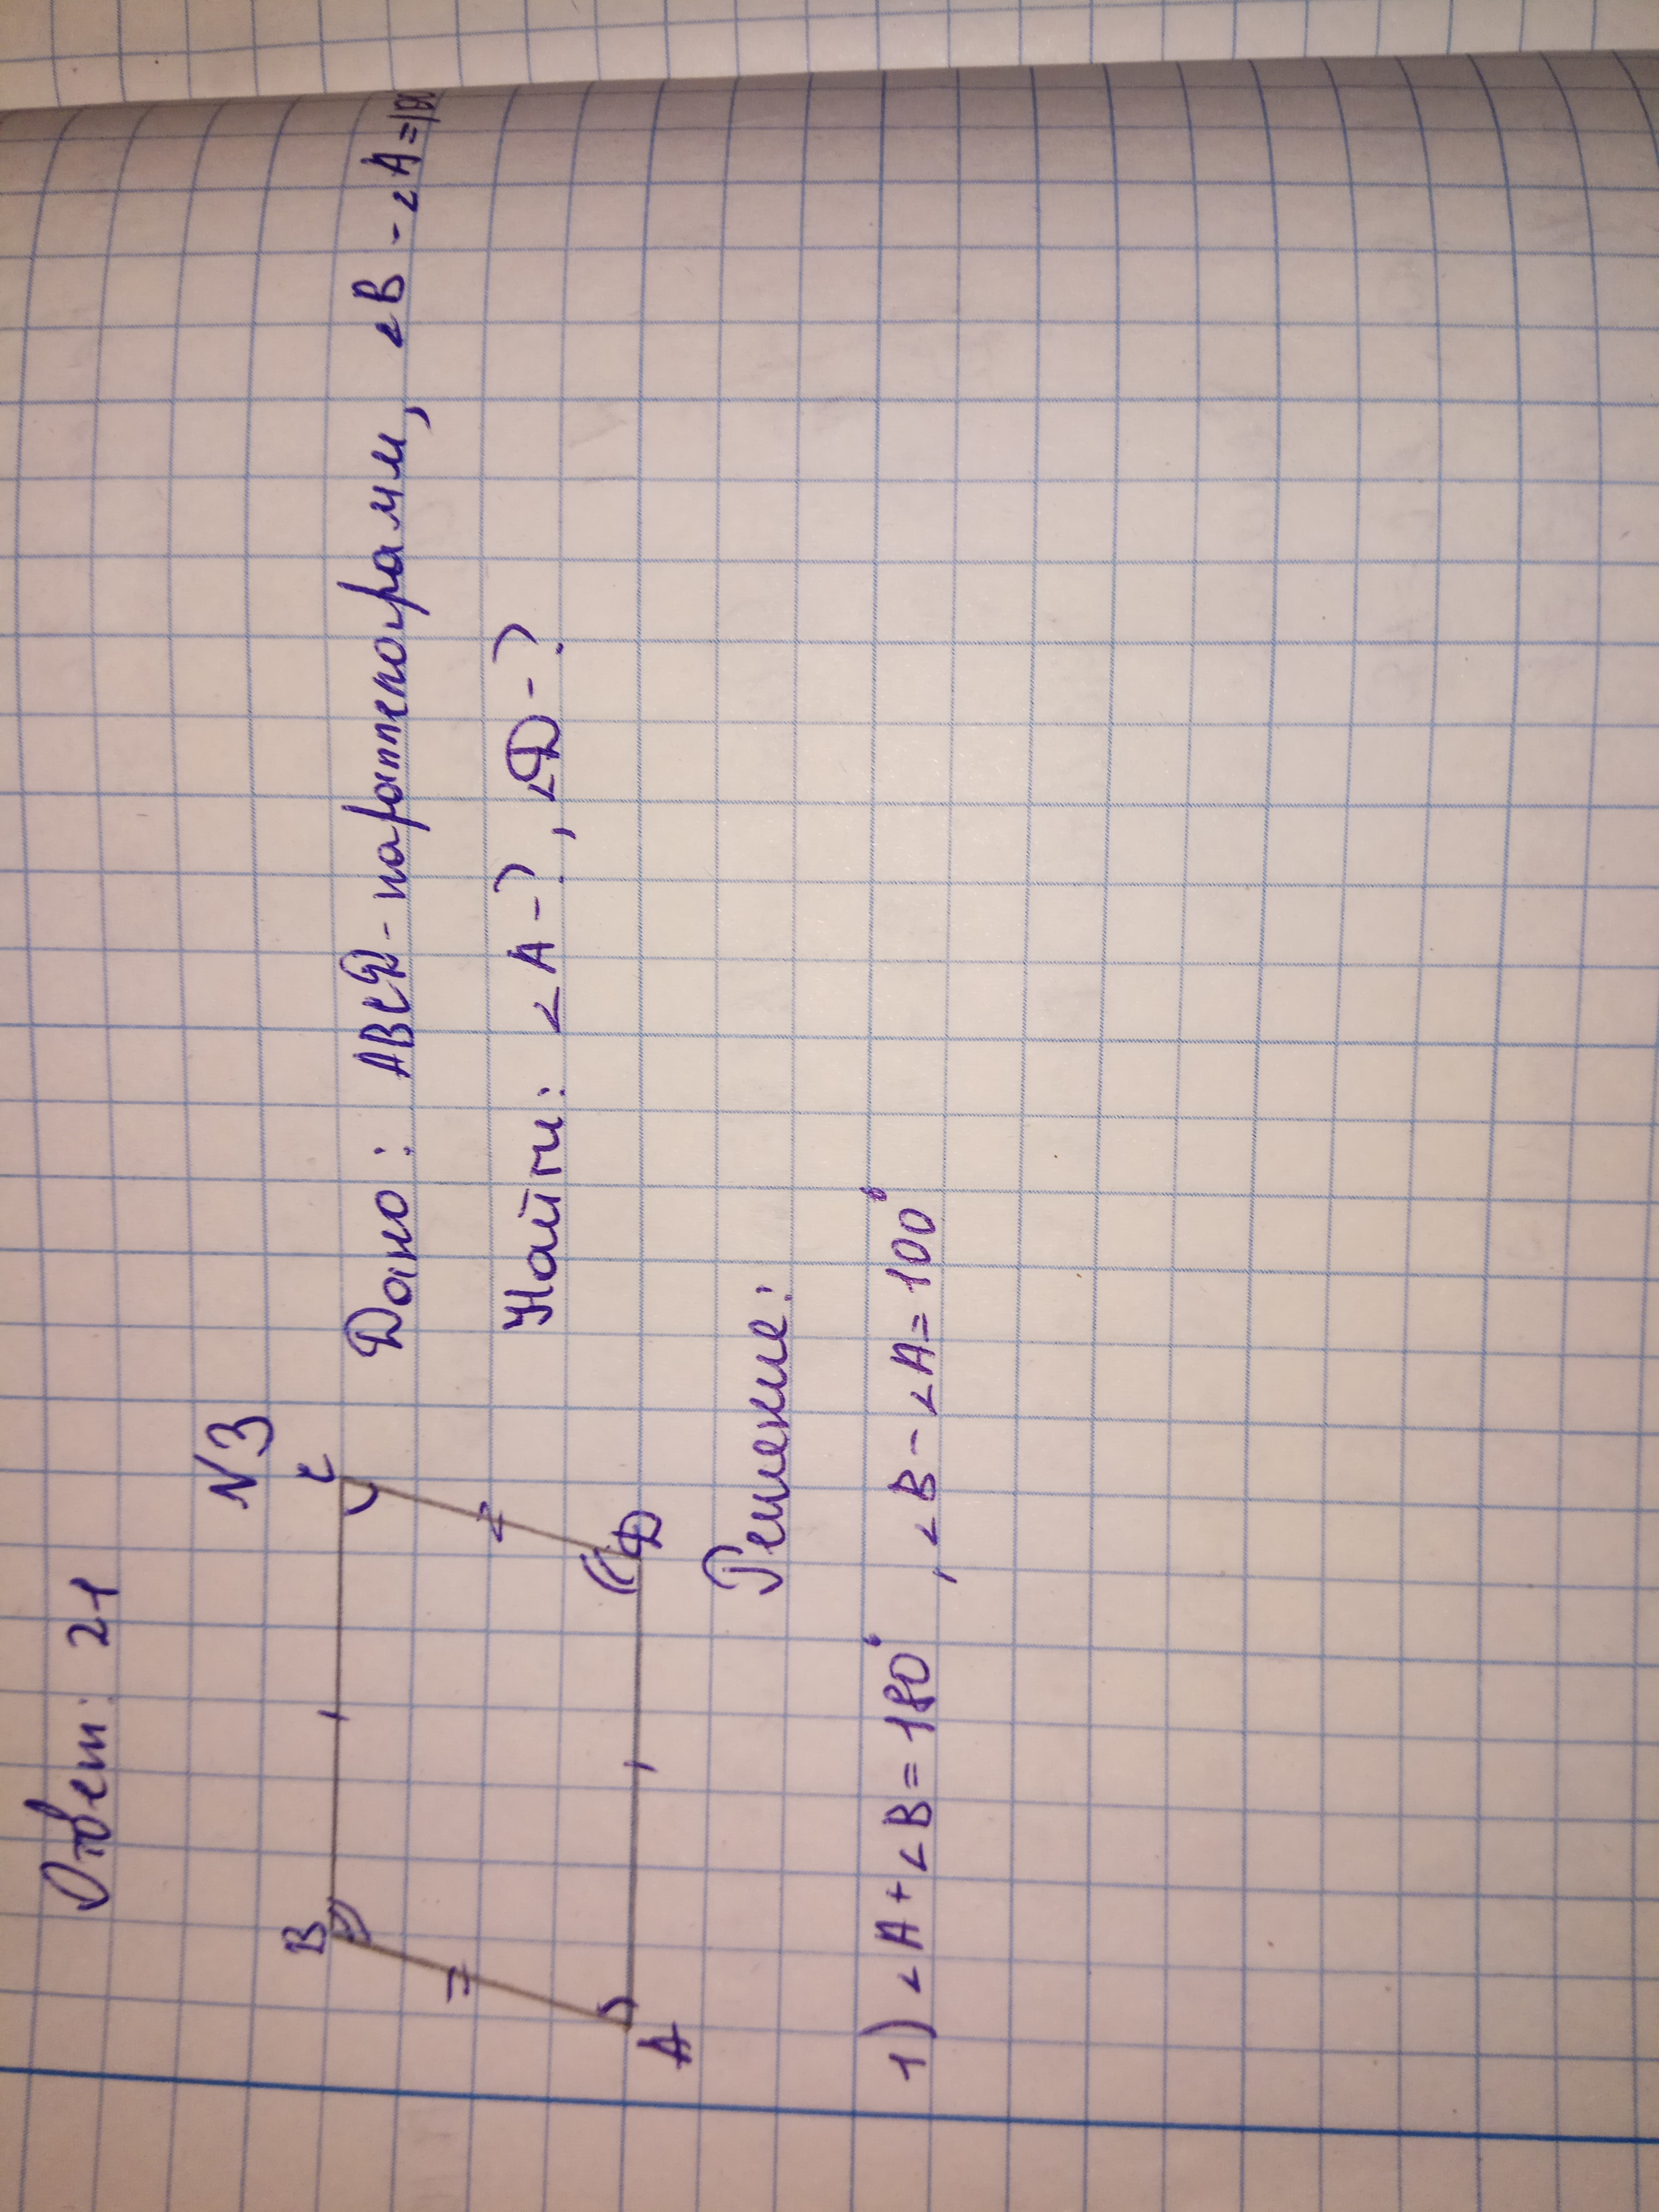 Ответ: 21
N3
B
C
A
D
Дано: ABCD - параллелограмм, ∠B - ∠A =
Найти: ∠A - ?, ∠D - ?
Решение:
1) ∠A + ∠B = 180°, ∠B - ∠A = 100°